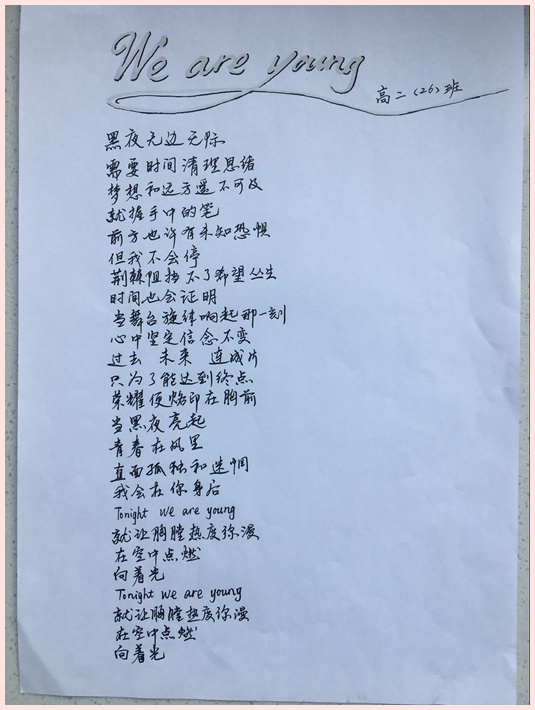 We are young
高二(26)班
黑夜无边无际
需要时间清理思绪
梦想和远方遥不可及
就握手中的笔
前方也许有未知恐惧
但我不会停
荆棘阻挡不了希望丛生
时间也会证明
当舞台旋律响起那一刻
心中坚定信念不变
过去 未来 连成片
只为了能达到终点
荣耀便烙印在胸前
当黑夜亮起
青春在风里
直面孤独和迷惘
我会在你身后
Tonight we are young
就让胸膛热度弥漫
在空中点燃
向着光
Tonight we are young
就让胸膛热度弥漫
在空中点燃
向着光